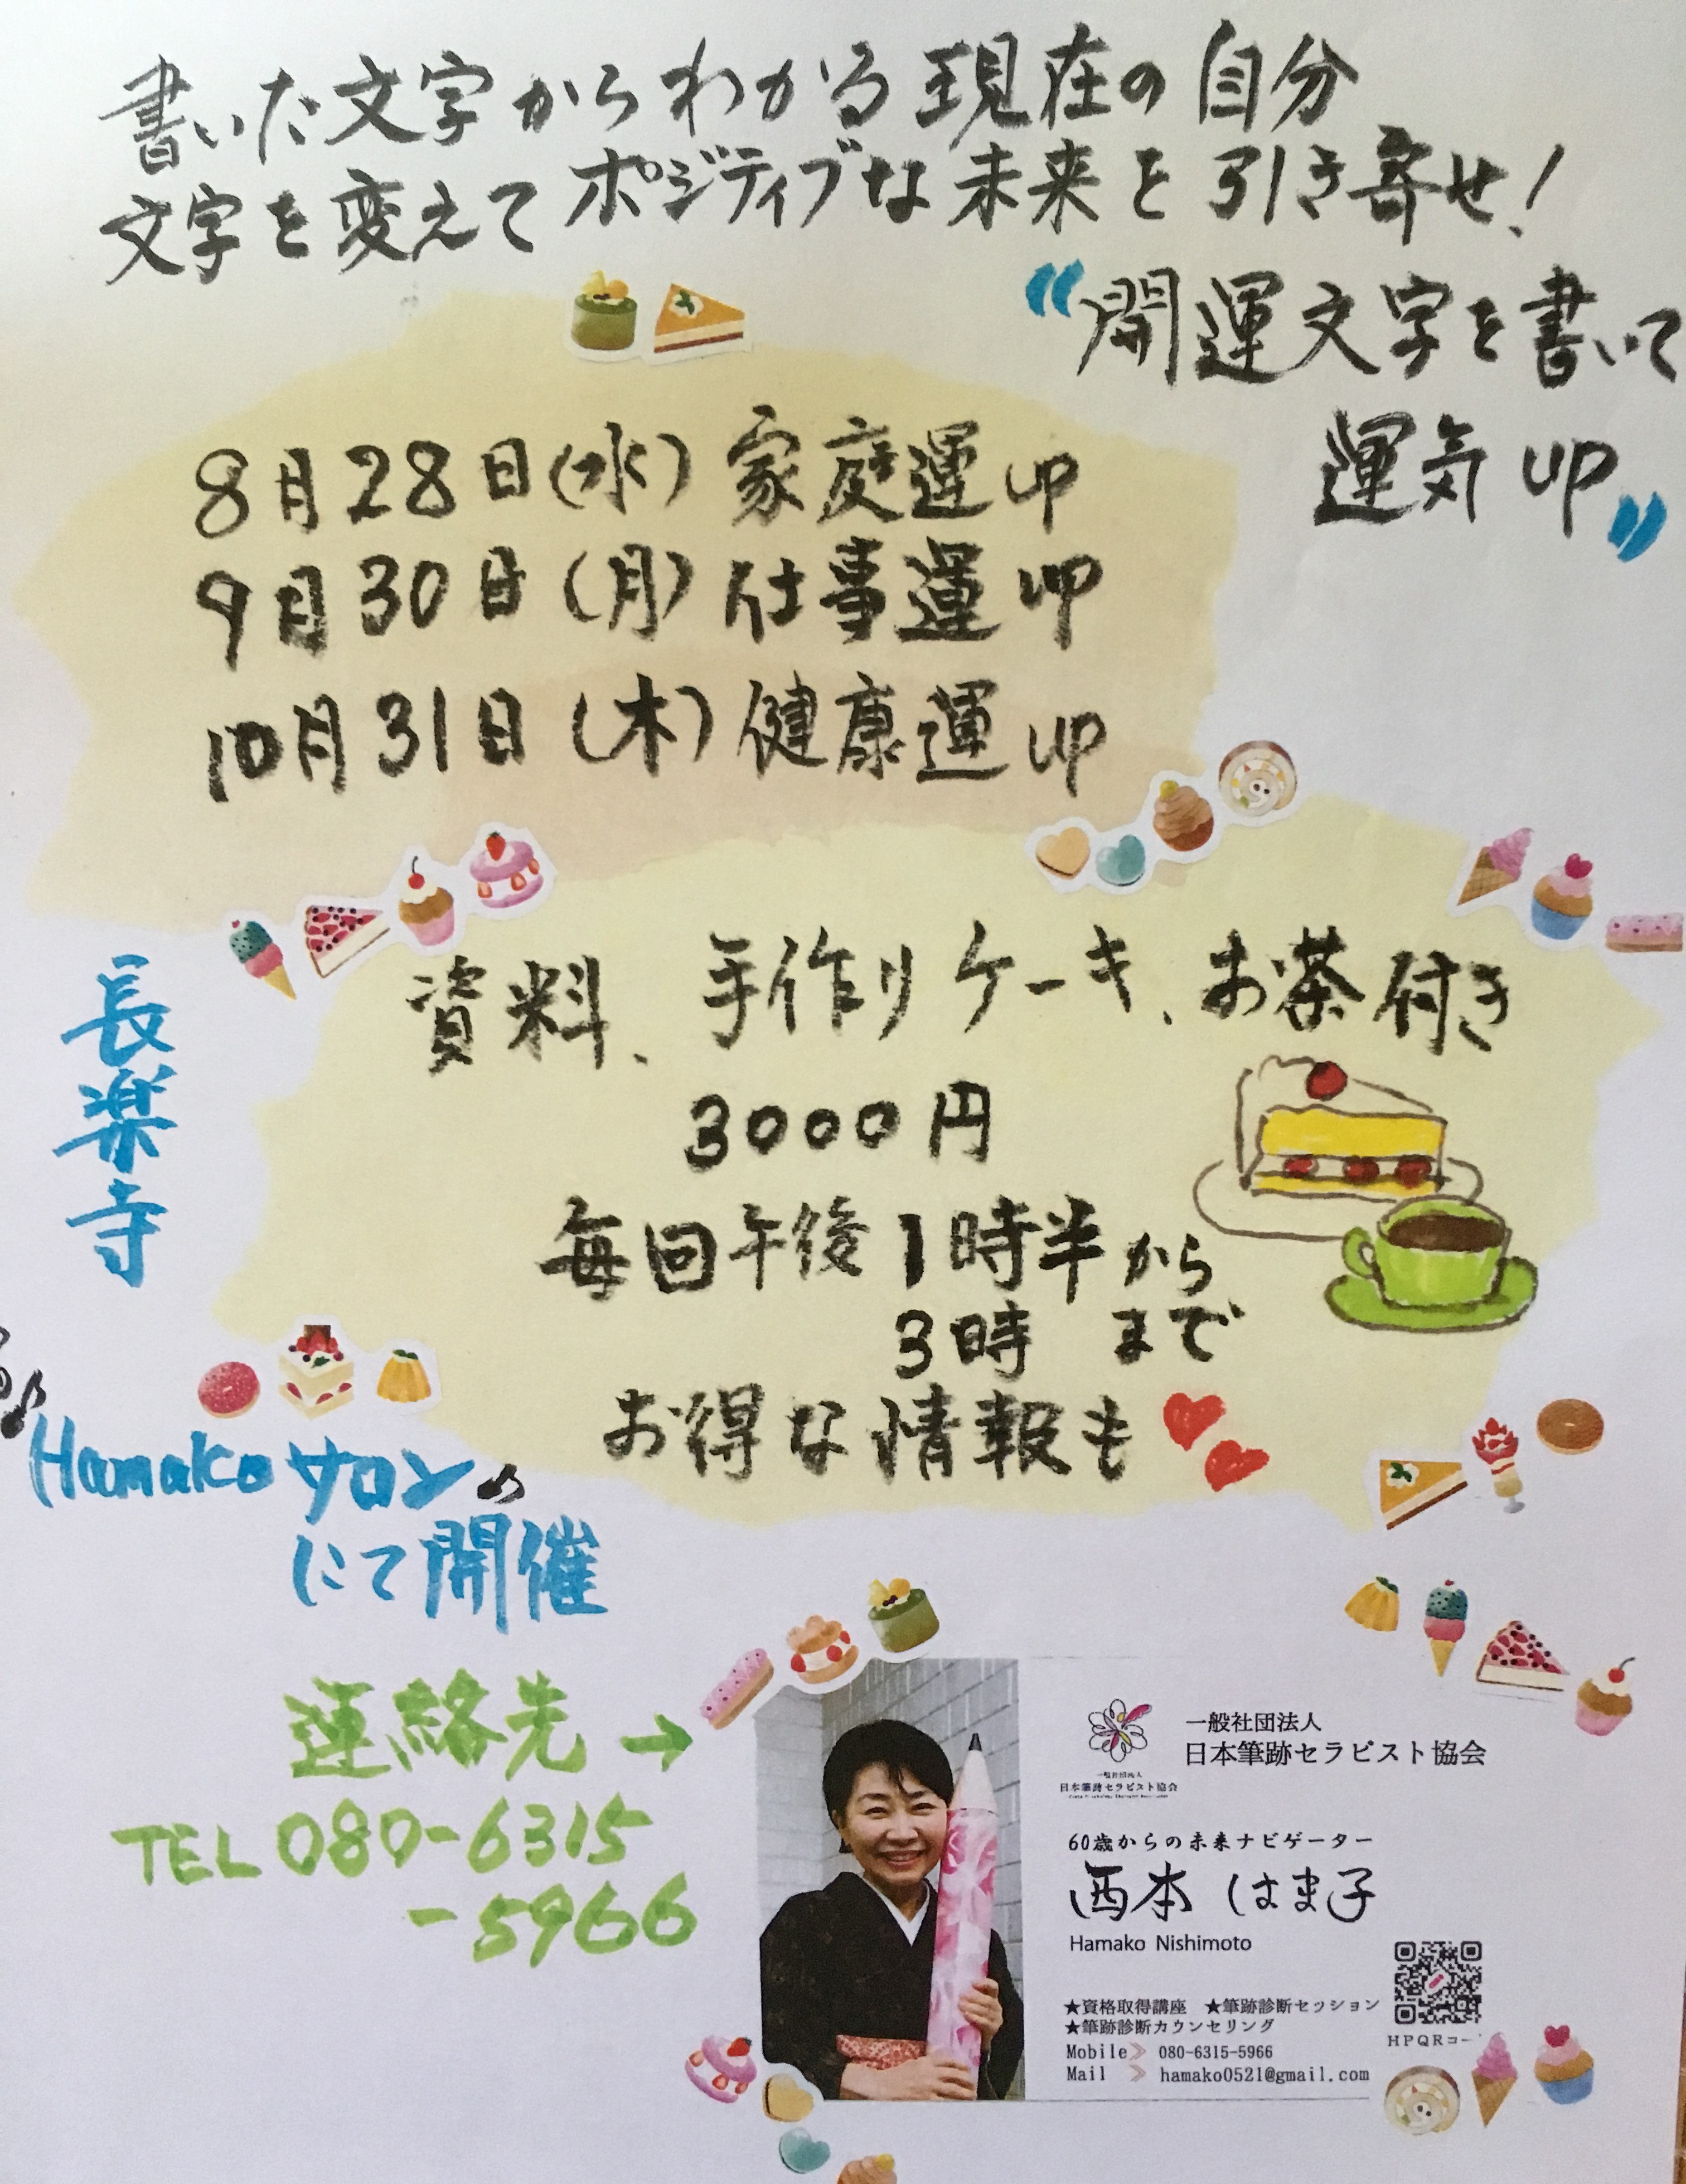 書いた文字からわかる現在の自分
文字を変えてポジティブな未来を引き寄せ!
“開運文字を書いて
運気up”
8月28日(水)家庭運up
9月30日(月)仕事運up
10月31日(木)健康運up
資料、手作りケーキ、お茶付き
3000円
毎回午後1時半から
3時まで
お得な情報も
長楽寺
Hamakoサロン
にて開催
連絡先→
TEL 080-6315
-5966
一般社団法人
日本筆跡セラピスト協会
一般社団法人
日本筆跡セラピスト協会
60歳からの未来ナビゲーター
西本 はま子
Hamako Nishimoto
★資格取得講座 ★筆跡診断セッション
★筆跡診断カウンセリング
Mobile 080-6315-5966
Mail hamako0521@gmail.com
HPQRコー